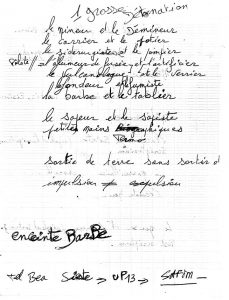 1 grosse détonation
le mineur et le Démineur
le carrier et le potier
le sidérurgiste et le pompier
l'allumeur de fusées et l'artificier
le vulcanologue et le verrier
le fondeur
la barbe et le tablier
le sapeur et la
petites mains
sortie de terre sans sortie d
impulsion expulsion
enceinte BARBE
tel Bea Siste → UP13 → SAFIM